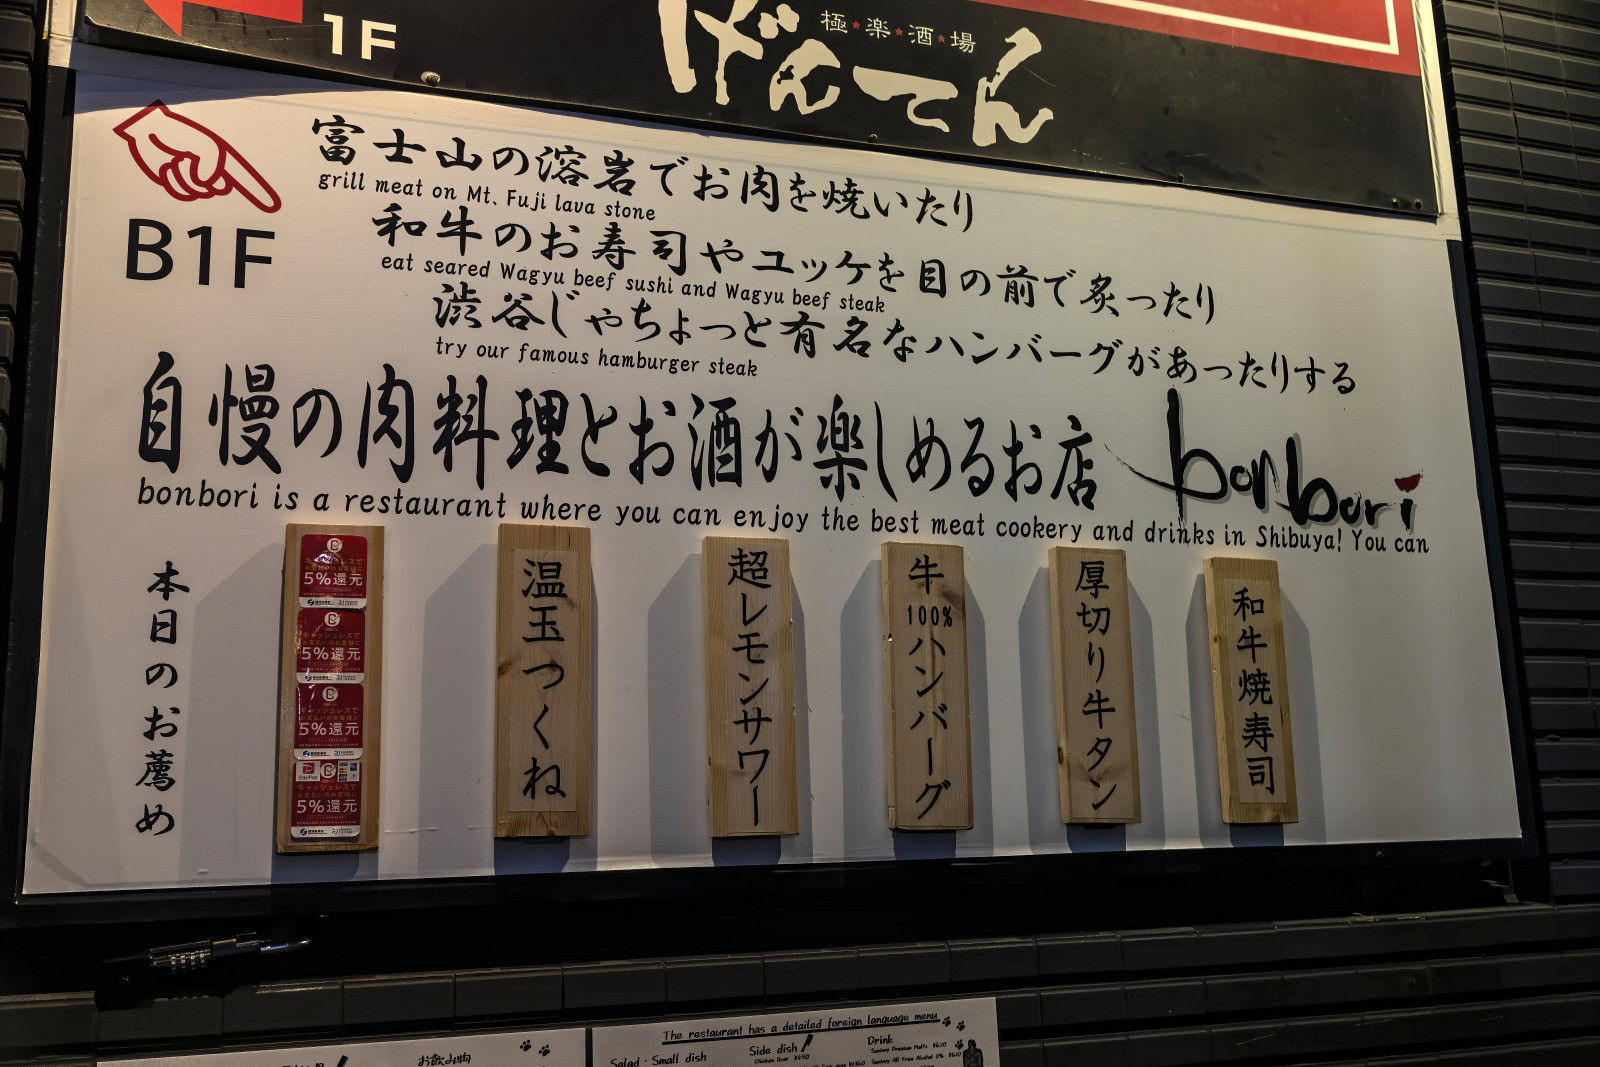 1F
極★楽★酒★場
げんてん
B1F
富士山の溶岩でお肉を焼いたり
grill meat on Mt. Fuji lava stone
和牛のお寿司やユッケを目の前で炙ったり
eat seared Wagyu beef sushi and Wagyu beef steak
渋谷じゃちょっと有名なハンバーグがあったりする
try our famous hamburger steak
自慢の肉料理とお酒が楽しめるお店
bonbori
bonbori is a restaurant where you can enjoy the best meat cookery and drinks in Shibuya! You can
本日のお薦め
キャッシュレスで
お支払いのお客様に
5%還元
キャッシュレスで
お支払いのお客様に
5%還元
キャッシュレスで
お支払いのお客様に
5%還元
PayPay
キャッシュレスで
お支払いのお客様に
5%還元
温玉つくね
超レモンサワー
牛100%ハンバーグ
厚切り牛タン
和牛焼寿司
お飲み物
The restaurant has a detailed foreign language menu
Salad・Small dish
Side dish
Drink